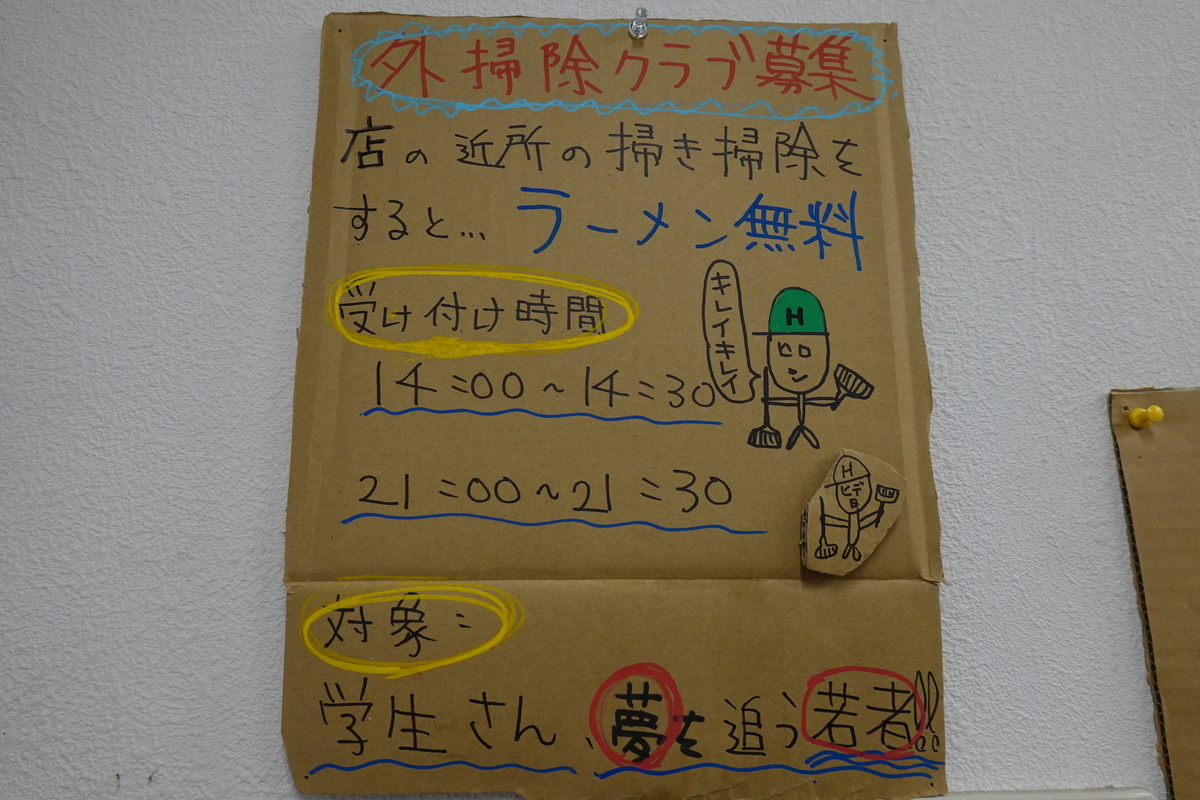 外掃除クラブ募集
店の近所の掃き掃除を
すると…ラーメン無料
受け付け時間
キレイキレイ
H
ヒロ
シ
14:00~14:30
21:00~21:30
H
ヒデ
対象:
学生さん、夢を追う若者!!